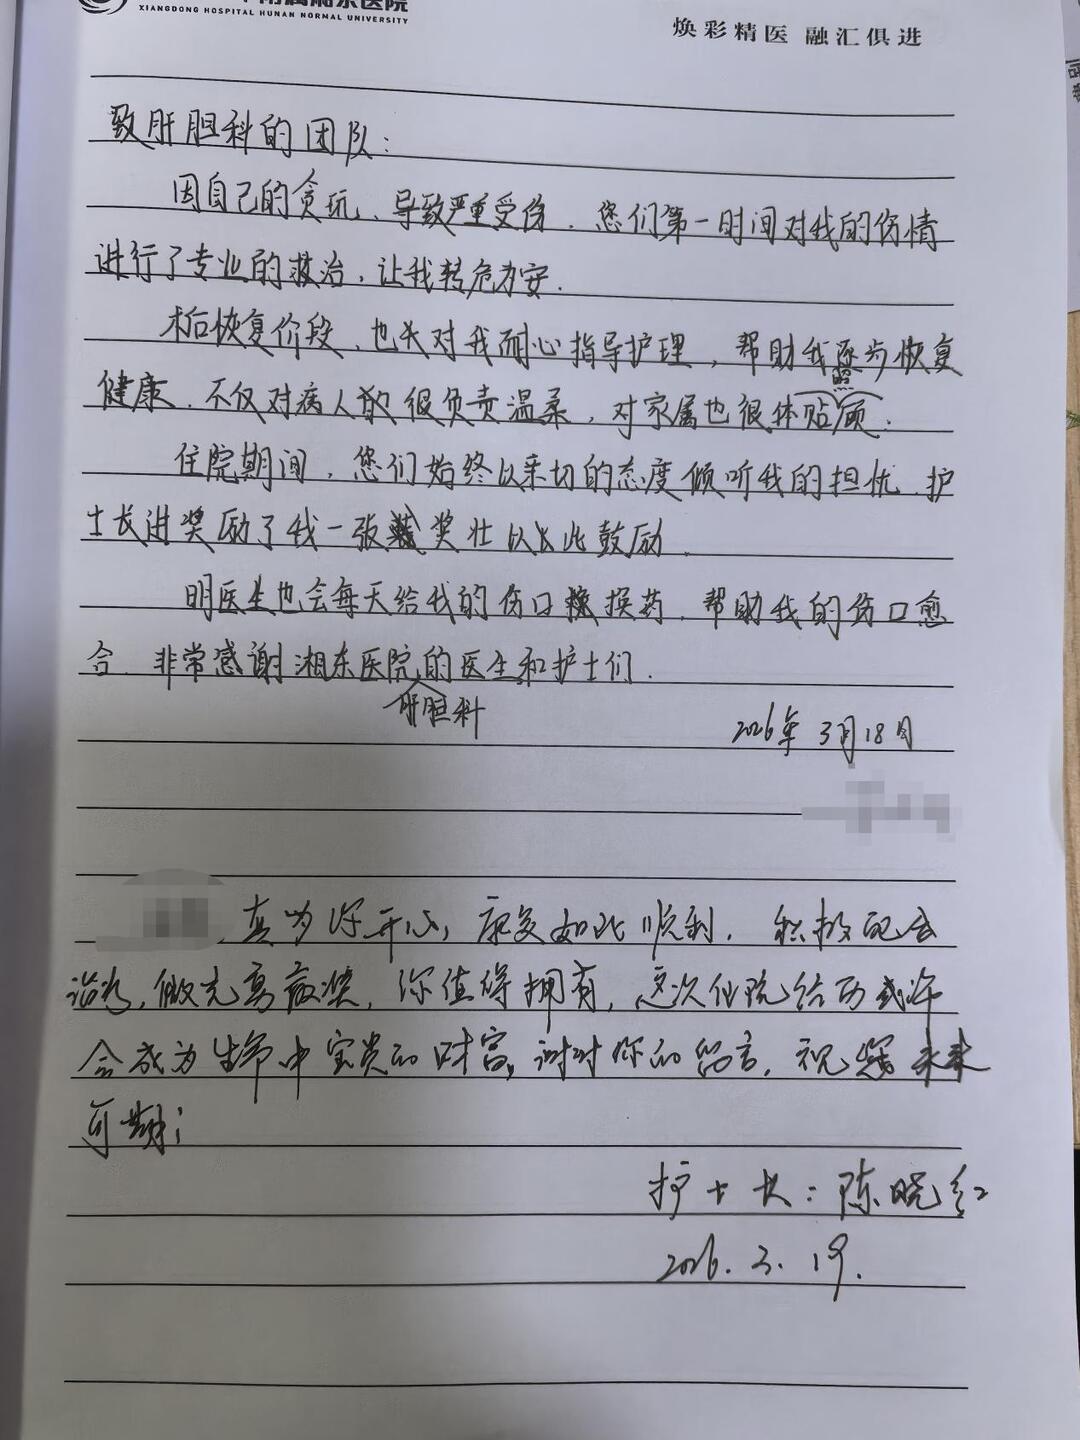 附属湘东医院
XIANGDONG HOSPITAL HUNAN NORMAL UNIVERSITY
焕彩精医 融汇俱进
致肝胆科的团队：
因自己的贪玩、导致严重受伤．您们第一时间对我的伤情
进行了专业的救治，让我转危为安．
术后恢复价段、也长对我耐心指导护理，帮助我逐步恢复
健康．不仅对病人很负责温柔，对家属也很体贴照顾．
住院期间，您们始终以亲切的态度倾听我的担忧．护
士长进奖励了我一张奖壮以长此鼓励．
明医生也会每天给我的伤口换药．帮助我的伤口愈
合．非常感谢湘东医院肝胆科的医生和护士们．
2026年3月18日
真为你开心，康复如此顺利．积极配合
治疗，做完勇敢奖，你值得拥有，这次住院经历或许
会成为生命中宝贵的财富，谢谢你的留言，祝您未来
可期；
护士长：陈晓红
2026.3.19.